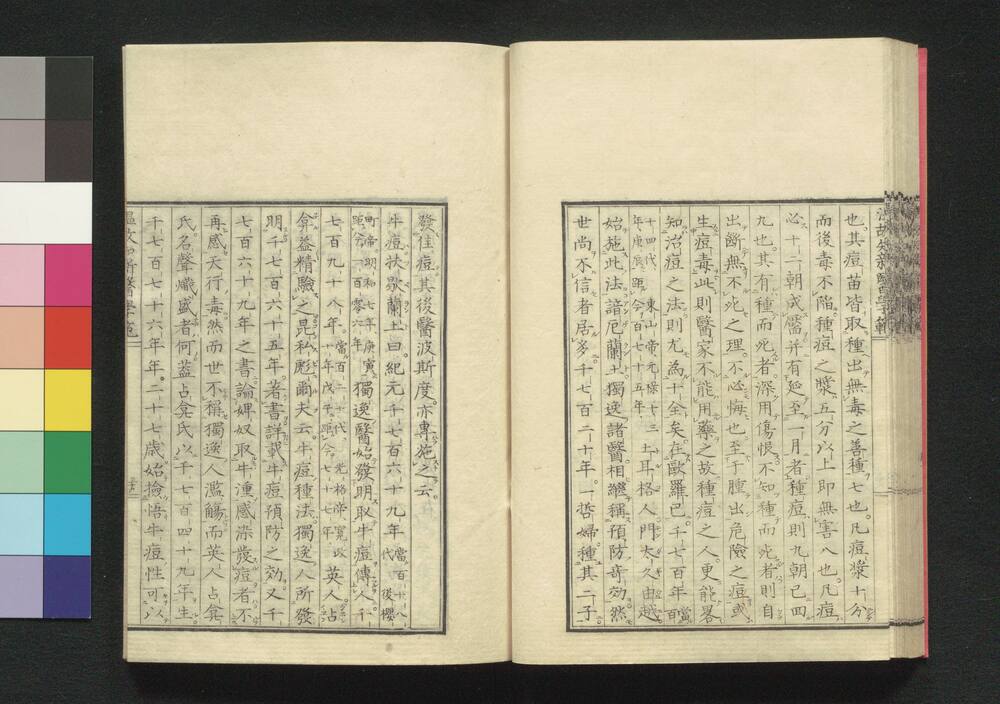 也。其痘苗皆取種出無毒之善種七也。凡痘漿十分
而後毒不陷。種痘之漿五分以上即無害八也。凡痘
必十二朝成靨并有延至一月者。種痘則九朝已四
九也。其有種而死者。深用傷恨。不知種而死者則自
出斷無不死之理。不必悔也。至于腫出危險之痘或
生痘毒。此則醫家不能用藥之故。種痘之人更能畧
知治痘之法。則尤為十全矣。在歐羅巴千七百年當百
十四代、東山帝元祿十三
年庚辰距今百七十五年、土耳格人門太久由越
始施此法。諳厄蘭土獨逸諸醫相繼稱預防奇効。然
世尚不信者居多。千七百二十年。一哲婦種其二子。
發佳痘。其後醫波斯度。亦專施之云。
牛痘扶歇蘭土曰。紀元千七百六十九年當百十八
代後櫻
町帝明和七年庚寅
距今一百零六年獨逸醫始發明取牛痘傳人。千
七百九十八年。當百二十代、光格帝寛政
十年戊午距今七十七年英人占
弇益精驗之。昆私彪爾夫云。牛痘種法。獨逸人所發
明。千七百六十五年。著書詳載牛痘預防之効。又千
七百六十九年之書論婢奴取牛湩感染發痘者不
再感天行毒。然而世不稱獨逸人濫觴而英人占弇
氏名聲熾盛者何。蓋占弇氏以千七百四十九年生
千七百七十六年年。二十七歲始撿悟牛痘性可以